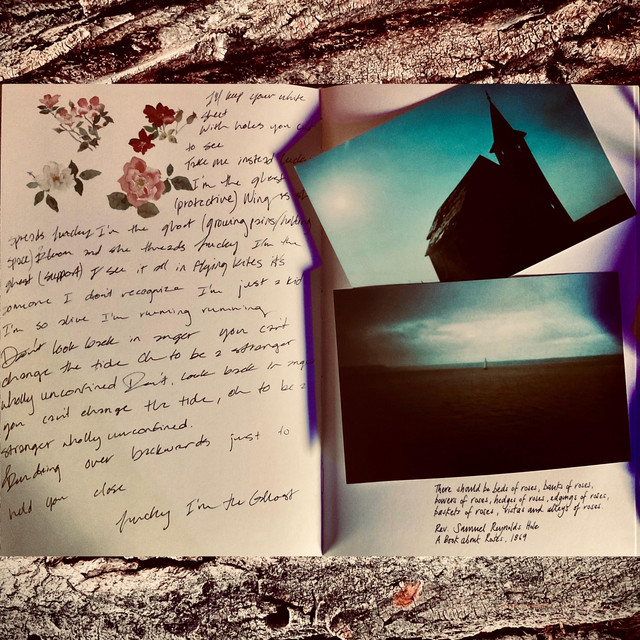 I'll keep your white
sheet
With holes you can
to see
Take me instead
I'm the ghost
(protective) Wing is
spreads funcky I'm the ghost (growing pains/holding
space) Bloom and she threads funcky I'm the
ghost (support) I see it all in flying kites it's
someone I don't recognize I'm just a kid
I'm so alive I'm running running
Don't look back in anger you can't
change the tide oh to be a stranger
wholly unconfined Don't look back in
you can't change the tide, oh to be a
stranger wholly unconfined.
Bending over backwards just to
hold you close
funcky I'm the Ghost
There should be beds of roses, banks of roses,
bowers of roses, hedges of roses, edgings of roses,
baskets of roses, vistas and alleys of roses.
Rev. Samuel Reynolds Hole
A Book about Roses, 1869